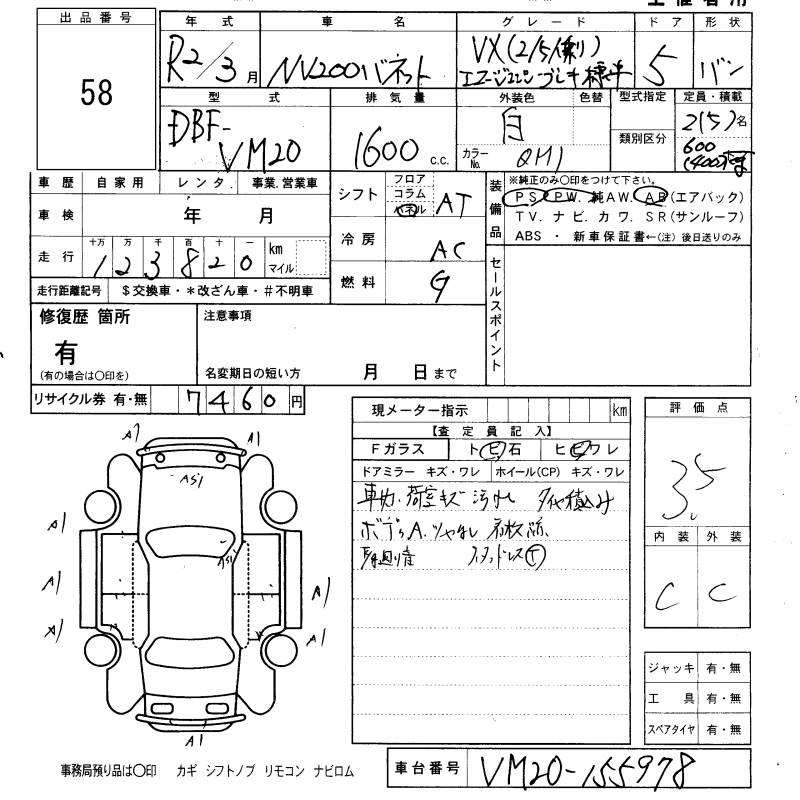 出品番号
58
年式 車名 グレード ドア 形状
R2/3月 NV200バネット VX(2/5人乗り) 5 バン
エマージェンシーブレーキ標準
型式 排気量 外装色 色替 型式指定 定員・積載
DBF-VM20 1600 c.c. 白 2(5)名
カラーNo. QM1 類別区分 600(400)
車歴 自家用 レンタ. 事業.営業車
車検 年 月
走行 十万 万 千 百 十 一 km マイル
1 2 3 8 2 0
走行距離記号 $交換車・*改ざん車・#不明車
シフト フロア コラム パネル AT
冷房 AC
燃料 G
装備品 ※純正のみ〇印をつけて下さい。
PS. PW. 純AW. AB(エアバック)
TV. ナビ. カワ. SR(サンルーフ)
ABS ・ 新車保証書←(注)後日送りのみ
セールスポイント
修復歴 箇所
有
(有の場合は〇印を)
注意事項
名変期日の短い方 月 日まで
リサイクル券 有・無 7460円
現メーター指示 km
【査定員記入】
Fガラス ト ビ 石 ヒビワレ
ドアミラー キズ・ワレ ホイール(CP) キズ・ワレ
車内.荷室キズ 汚れ タイヤ積込み
ボデーA.ツヤなし
スタッドレス
評価点
3.5
内装 外装
C C
A1 A1
AS1
A1
AS1
A1 A1
A1 A1
A1
ジャッキ 有・無
工具 有・無
スペアタイヤ 有・無
事務局預り品は〇印 カギ シフトノブ リモコン ナビロム
車台番号 VM20-155978